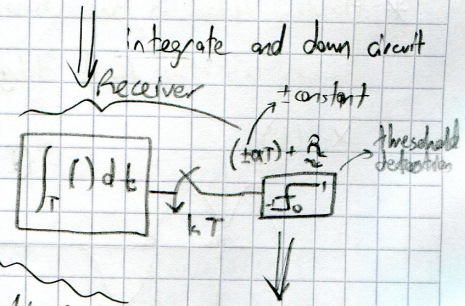 integrate and down circuit
Receiver
± constant
(±αT) + n
threshold
detection
∫T ( ) dt
kT
-1 0 1